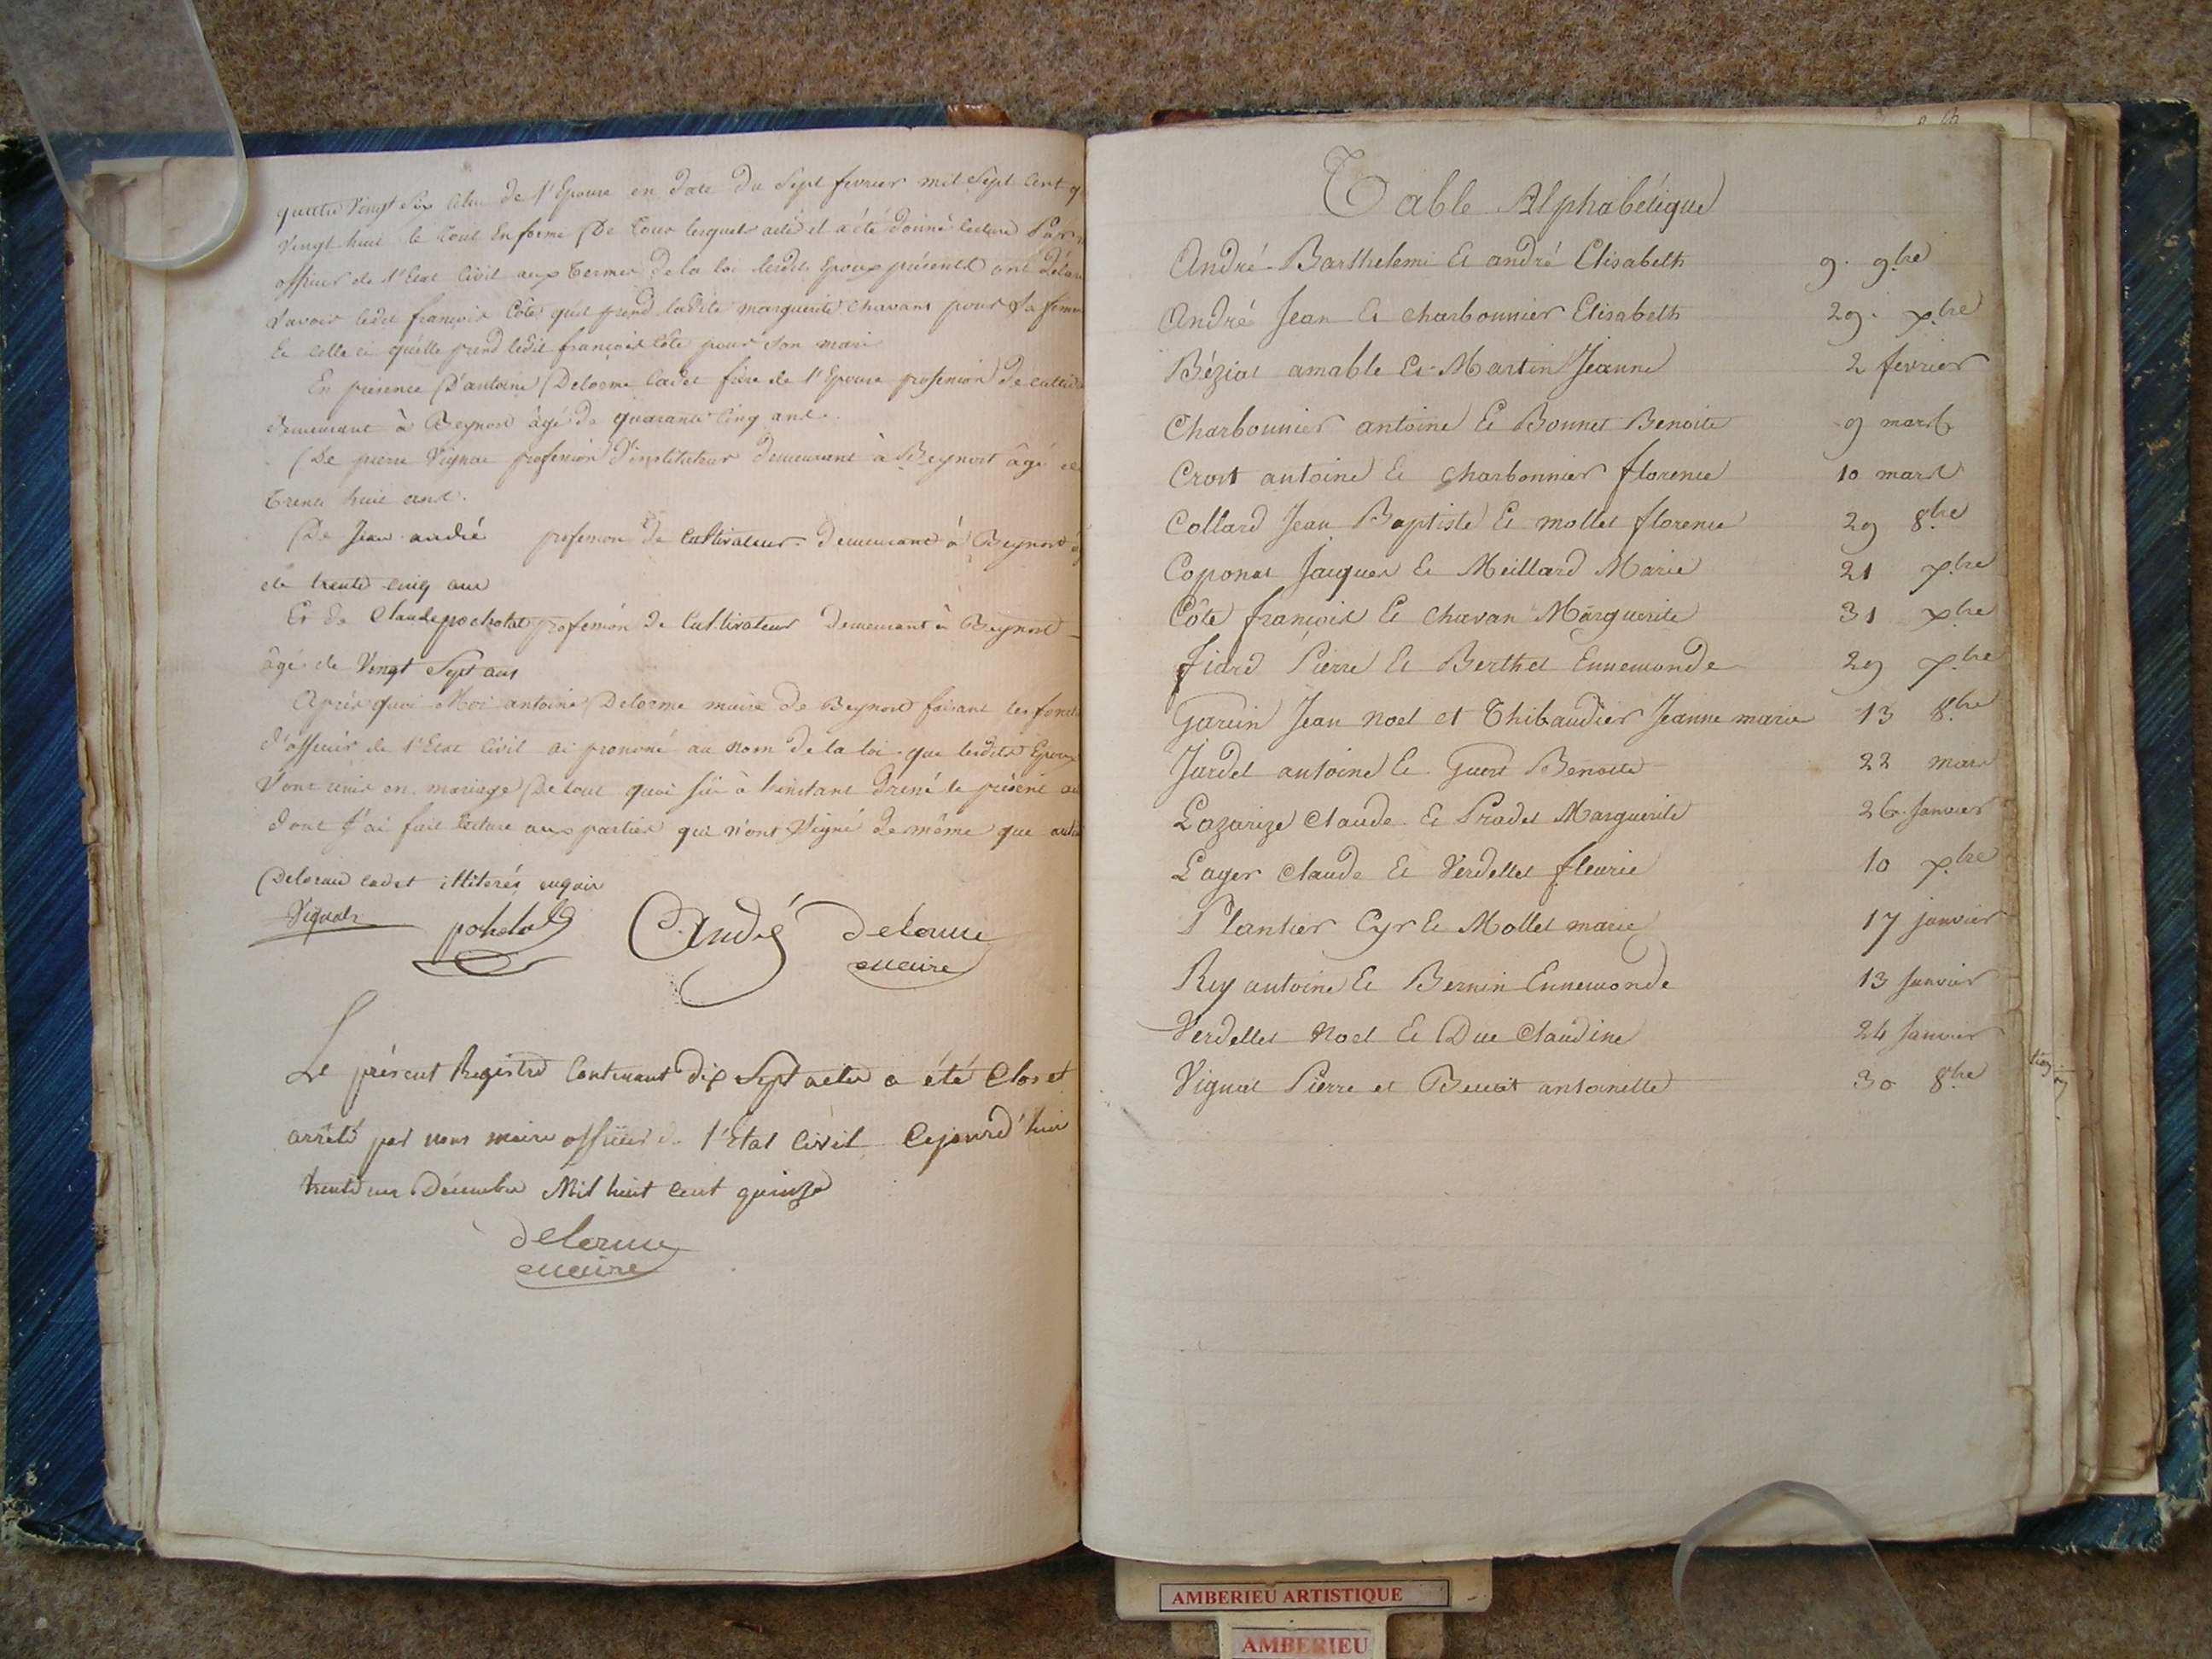 quatre Vingt Six celui de l'Epouse en date du Sept fevrier mil Sept Cent
Vingt huit le tout en forme De tous lesquels actes il a été donné lecture Par
officier de l'Etat Civil aux termes de la loi lesdits Epoux présents ont
Savoir ledit françois Côte qu'il prend ladite marguerite Chavant pour Sa femme
Et celle ci qu'elle prend ledit françois Côte pour Son mari
En présence D'antoine Delorme Cadet frère de l'Epouse profession De
demeurant à Beynost âgé de quarante Cinq ans
De pierre Vignat profession D'instituteur demeurant à Beynost âgé de
trente huit ans.
De Jean andré profession de Cultivateur demeurant à Beynost
de trente cinq ans
Et de Claude pochotat profession de Cultivateur Demeurant à Beynost
âgé de Vingt Sept ans
Après quoi Moi antoine Delorme maire de Beynost faisant les
d'officier de l'Etat Civil ai prononcé au nom de la loi que lesdits Epoux
Sont unis en mariage De tout quoi j'ai à l'instant dressé le présent
dont J'ai fait lecture aux parties qui n'ont Signé de même que
Delorme cadet illiterés
Vignat
C. André Delorme
maire
Le présent Registre Contenant dix Sept actes a été Clos et
arrêté par nous maire officier de l'Etat Civil Cejourd'hui
trente un Décembre Mil huit Cent quinze
delorme
maire
Table Alphabétique
André Barthelemi Et andré Elisabeth 9. 9.bre
André Jean Et charbonnier Elisabeth 29. x.bre
Béziat amable Et Martin Jeanne 2 fevrier
Charbonnier antoine Et Bonnet Benoite 9 mars
Crost antoine Et Charbonnier florence 10 mars
Collard Jean Baptiste Et mollet florence 29 8.bre
Coponat Jacques Et Meillard Marie 21 x.bre
Côte françois Et Chavan Marguerite 31 x.bre
fiard Pierre Et Berthet Ennemonde 29 x.bre
Garcin Jean noel et Thibaudier Jeanne marie 13 8.bre
Jardet antoine Et Benoite 22 mars
Lazarize Claude Et Pradet Marguerite 26 Janvier
Layer Claude Et Verdellet fleurie 10 x.bre
Plantier Cyr Et Mollet marie 17 janvier
Rey antoine Et Bernin Ennemonde 13 Janvier
Verdellet Noel Et Duc Claudine 24 Janvier
Vignat Pierre et Benoit antoinette 30 8.bre
AMBERIEU ARTISTIQUE
AMBERIEU